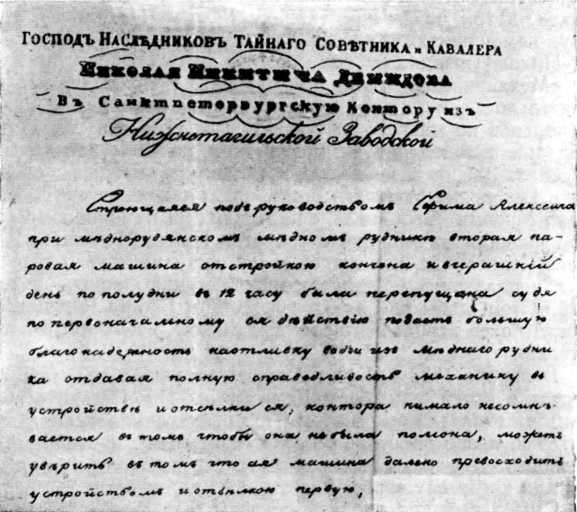 Господъ Наслѣдниковъ Тайнаго Совѣтника и Кавалера
Николая Никитича Демидова
Въ Санктпетербургскую Контору изъ
Нижнетагильской Заводской
Строющаяся подъ руководствомъ Ефима Алексеича
при мѣднорудянскомъ мѣдномъ рудникѣ вторая па-
ровая машина отстройкою кончена и вчерашній
день по полудни въ 12 часу была перепущена судя
по первоначальному ея дѣйствію подаетъ большую
благонадежность на отливку воды изъ мѣднаго рудни
ка отдавая полную справедливость механику въ
устройствѣ и отдѣлки ея, контора нимало несомнѣ-
вается въ томъ чтобы она небыла полезна, можетъ
увѣрить въ томъ что ея машина далеко превосходитъ
устройствомъ и отдѣлкою первую,